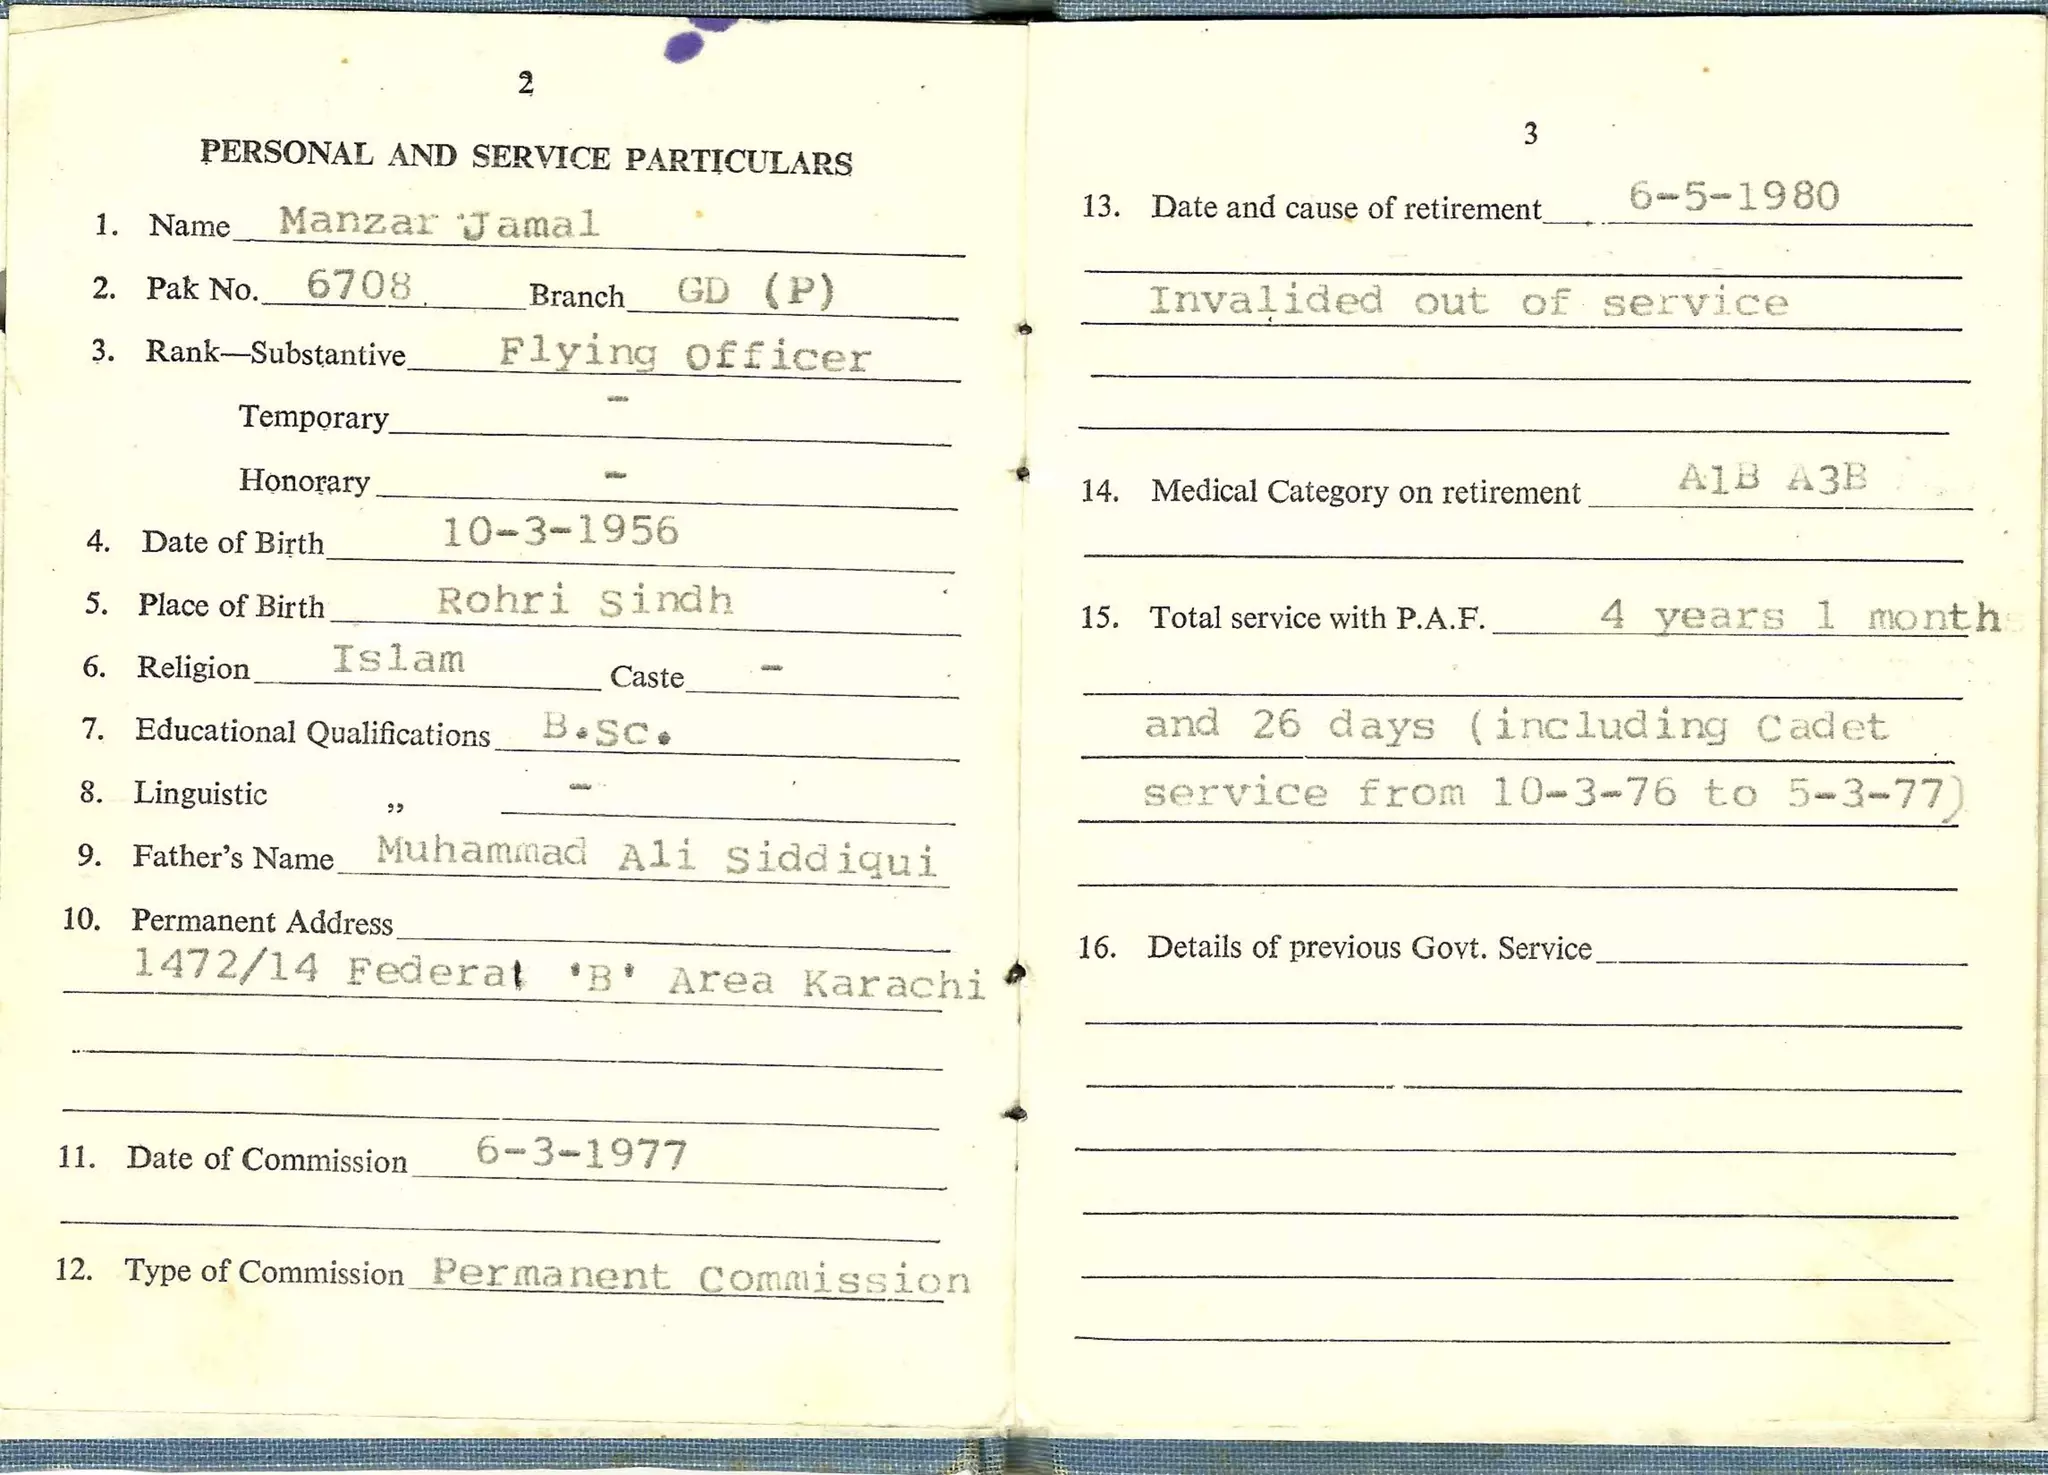 2
PERSONAL AND SERVICE PARTICULARS
1. Name Manzar Jamal
2. Pak No. 6708 Branch GD (P)
3. Rank—Substantive Flying Officer
Temporary -
Honorary -
4. Date of Birth 10-3-1956
5. Place of Birth Rohri Sindh
6. Religion Islam Caste -
7. Educational Qualifications B.Sc.
8. Linguistic „ -
9. Father's Name Muhammad Ali Siddiqui
10. Permanent Address
1472/14 Federal 'B' Area Karachi
11. Date of Commission 6-3-1977
12. Type of Commission Permanent Commission
3
13. Date and cause of retirement 6-5-1980
Invalided out of service
14. Medical Category on retirement A1B A3B
15. Total service with P.A.F. 4 years 1 month
and 26 days (including Cadet
service from 10-3-76 to 5-3-77)
16. Details of previous Govt. Service